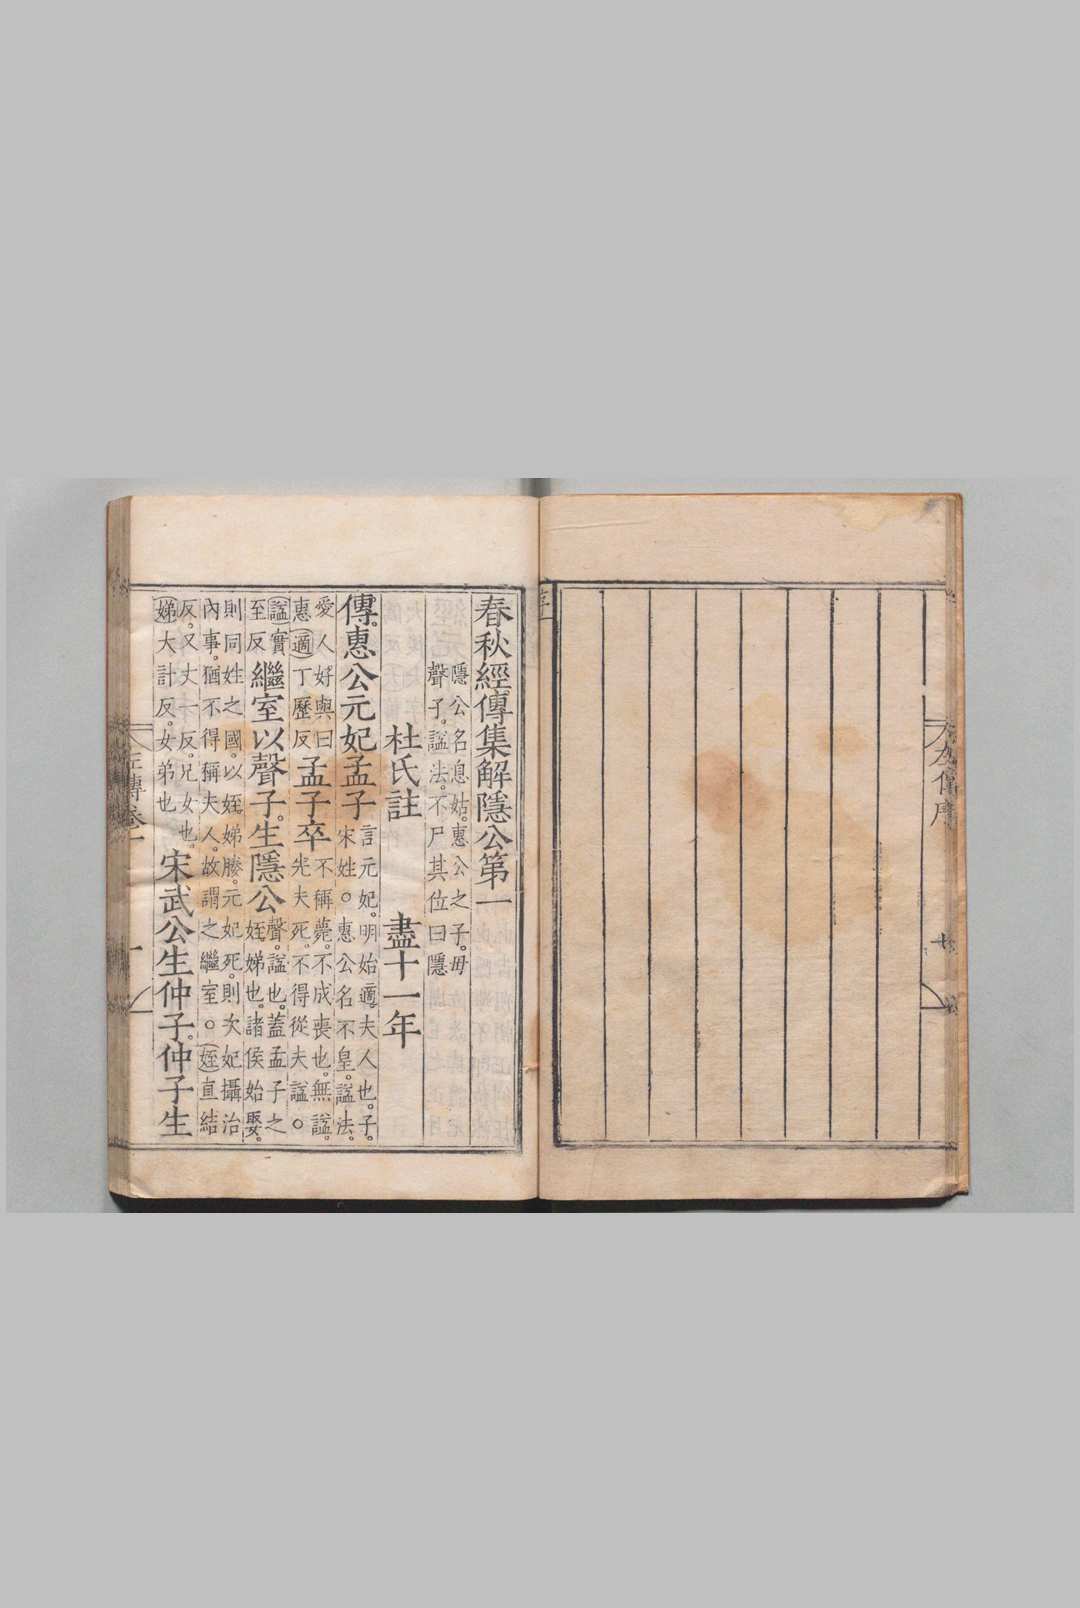 左傳序
七
春秋經傳集解隱公第一
隱公名息姑。惠公之子。母
聲子。謚法。不尸其位曰隱
杜氏註 盡十一年
傳。惠公元妃孟子 言元妃。明始適夫人也。子。宋姓。○惠公名不皇。謚法。
愛人好與曰惠(適)丁歷反 孟子卒 不稱薨。不成喪也。無謚。先夫死。不得從夫謚。○
(謚)實至反 繼室以聲子。生隱公 聲。謚也。蓋孟子之姪娣也。諸侯始娶。
則同姓之國。以姪娣媵。元妃死。則次妃攝治
內事。猶不得稱夫人。故謂之繼室。○(姪)直結
反。又丈一反。兄女也。(娣)大計反。女弟也 宋武公生仲子。仲子生
左傳卷一
一